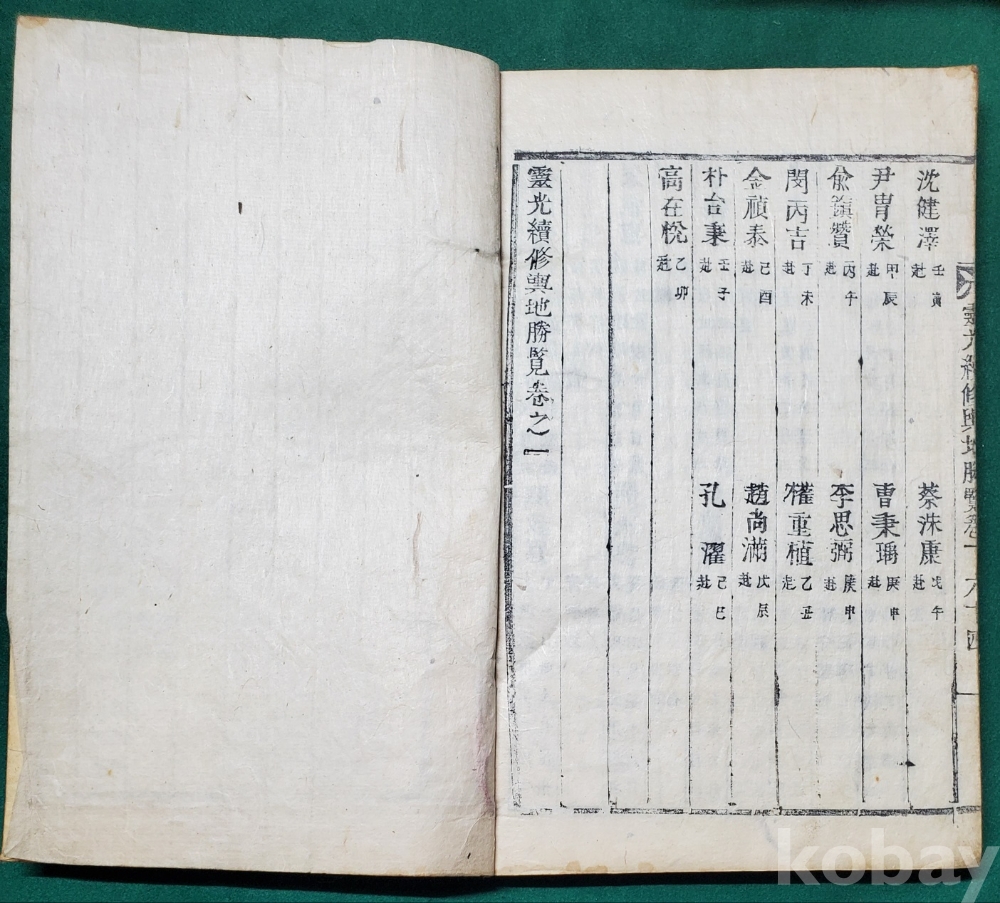 靈光續修輿地勝覽卷一 六十四
沈健澤 壬寅赴 蔡洙康 戊午赴
尹冑榮 甲辰赴 曹秉 庚申赴
兪 丙午赴 李思弼 庚申赴
閔丙吉 丁未赴 權重植 乙丑赴
金禎泰 己酉赴 趙尚滿 戊辰赴
朴台秉 壬子赴 孔濯 己巳赴
高在悅 乙卯赴
靈光續修輿地勝覽卷之一
kobay